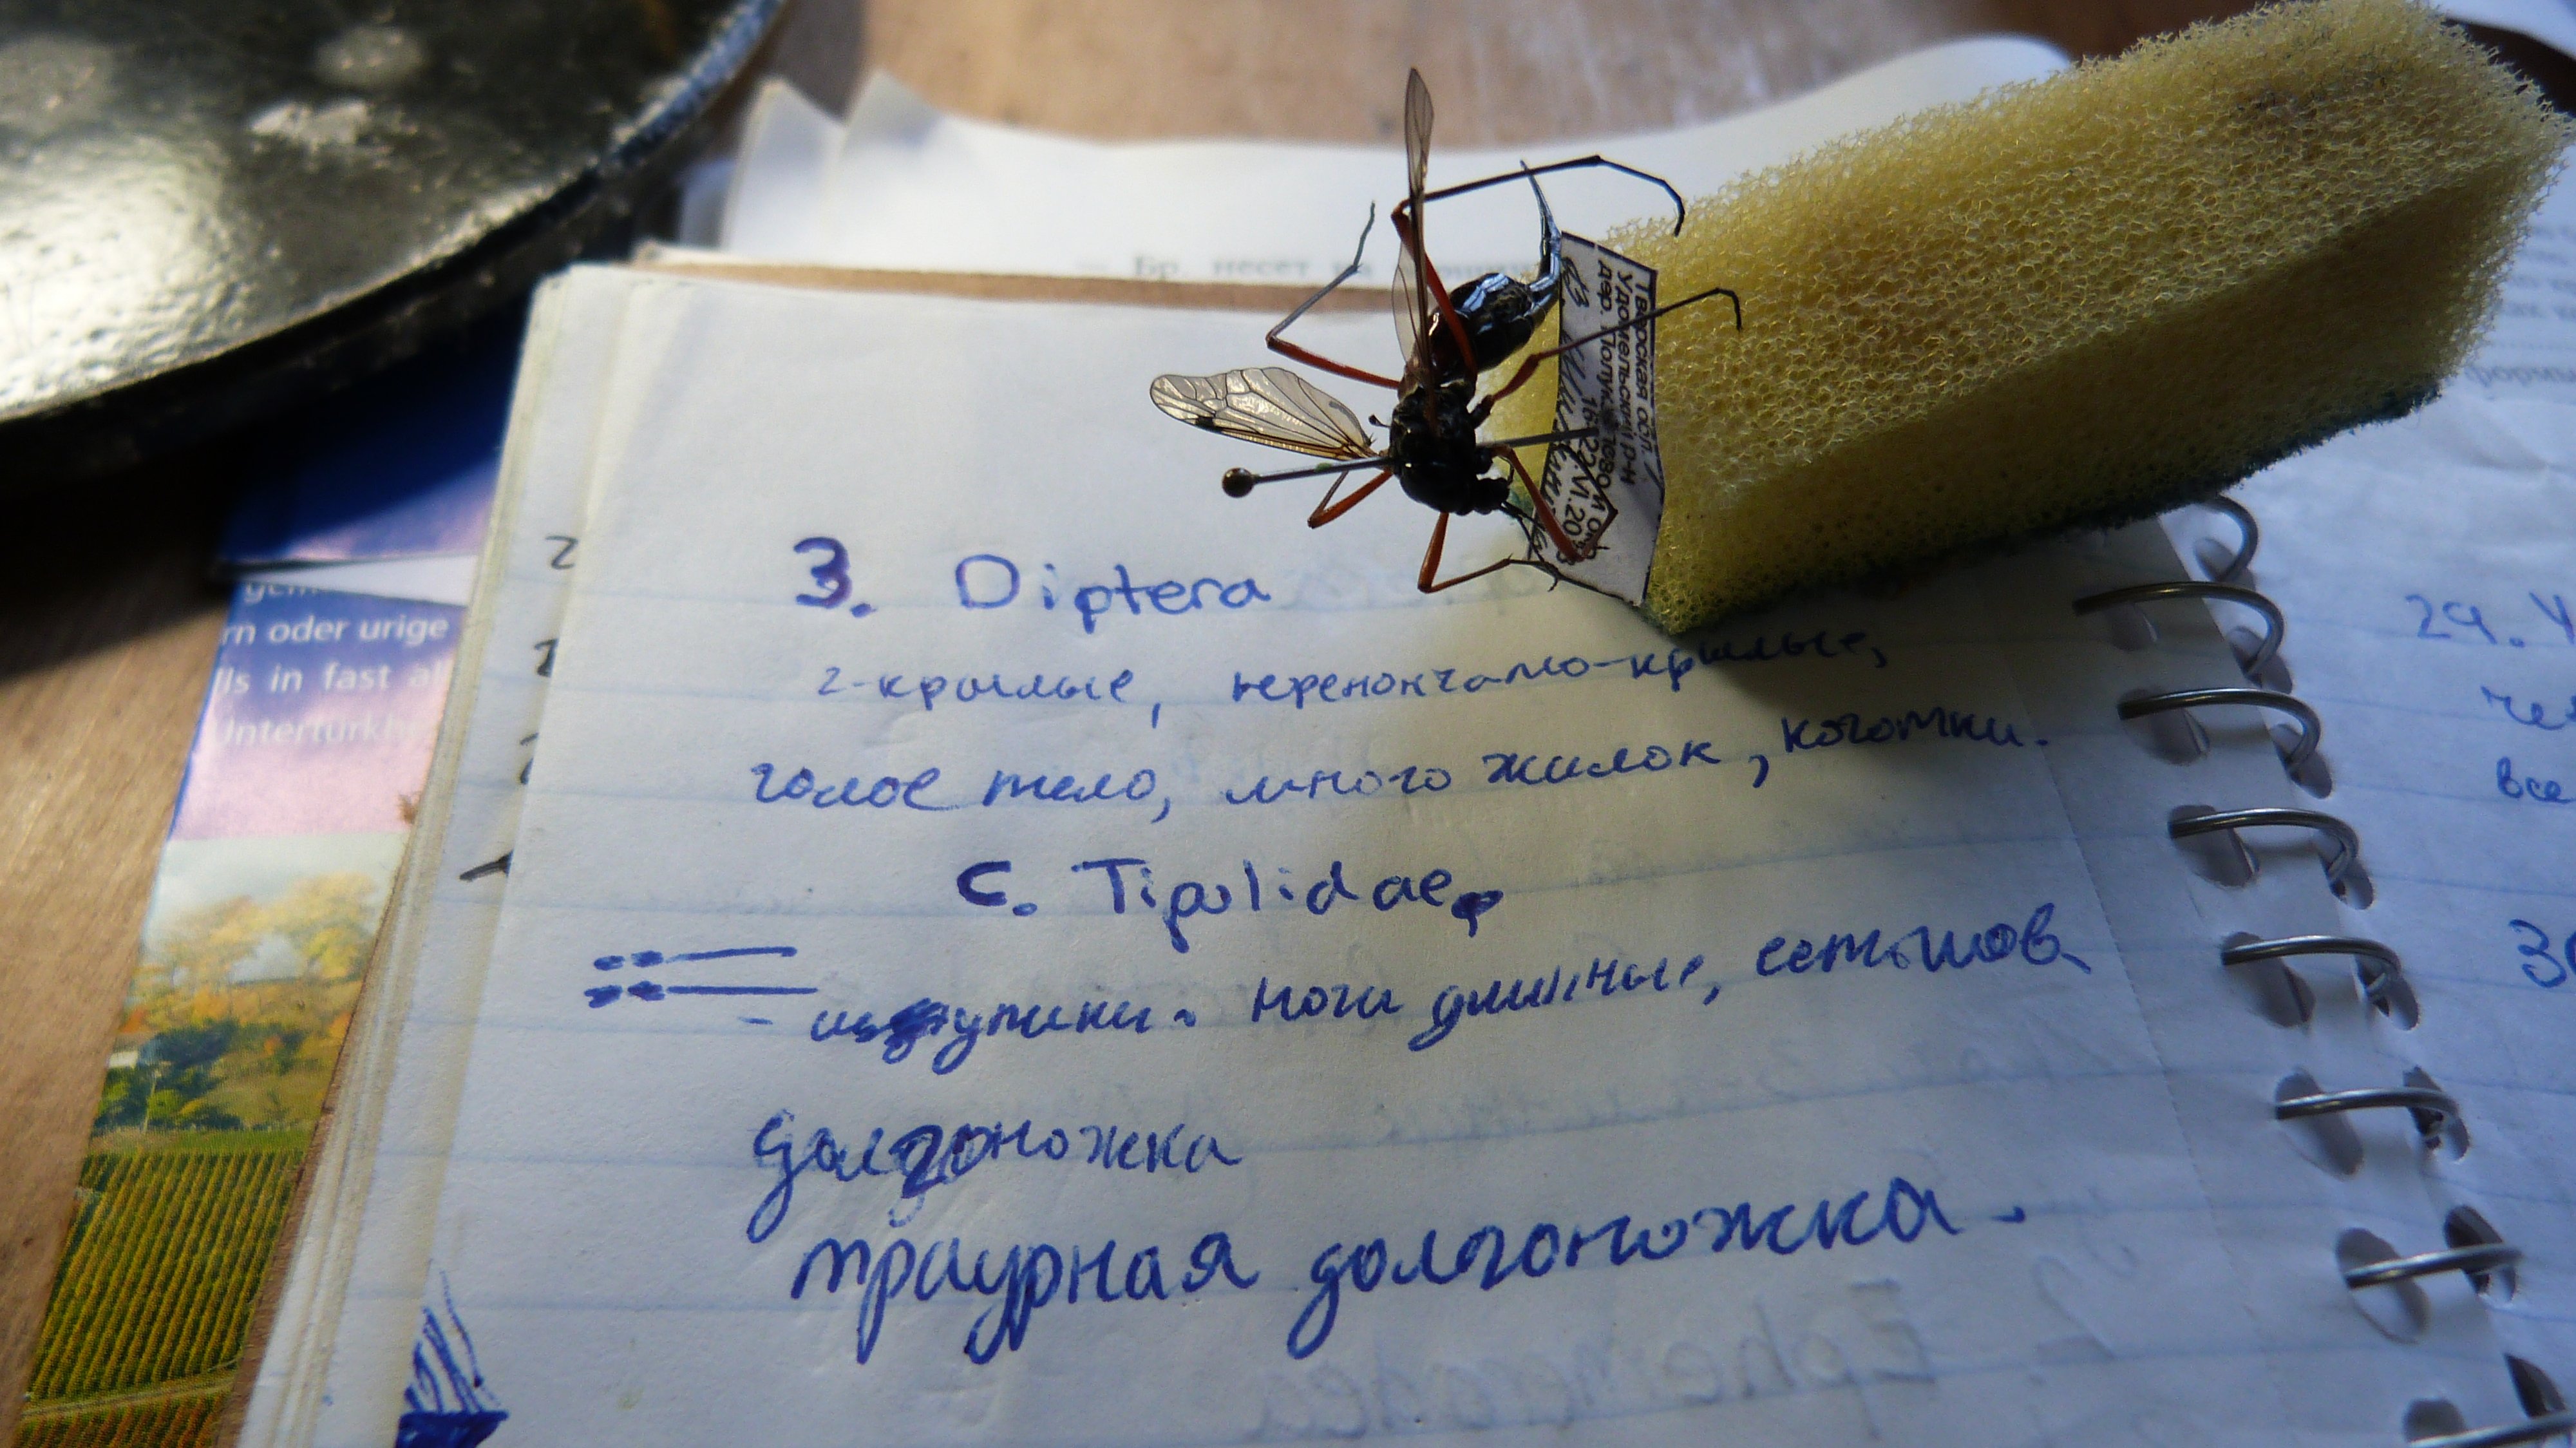 Бр. несет на
Тверская обл.
Удомельский р-н
дер.
3. Diptera
2-крылые, перепончато-крылые,
голое тело, много жилок, коготки.
C. Tipulidae
- щупики. Ноги длинные,
долгоножка
траурная долгоножка.
rn oder urige
lls in fast al
Unterturkh
24. У
все